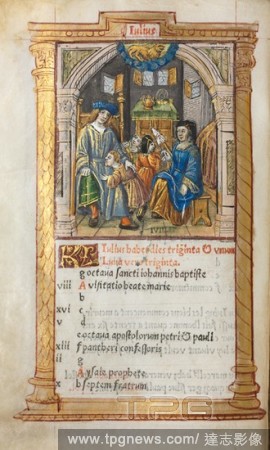 Iulius
IVLIVS
KL Iulius habet dies triginta & vnum
Luna vero triginta.
g octaua sancti iohannis baptiste
viii A visitatio beate marie
b
xvi c
v d
e octaua apostolorum petri & pauli
xiii f pantheri confessoris
ii g
A ysaie prophete
x b septem fratrum
TPG
www.tpgnews.com / 達志影像